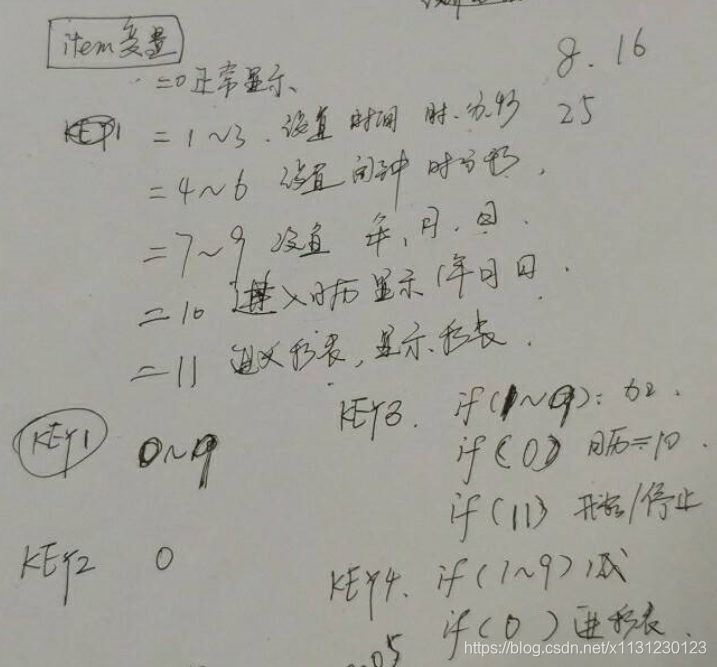 item变量
=0 正常显示
8.16
KEY1 =1~3. 设置 时间 时.分.秒 25
=4~6 设置 闹钟 时分秒,
=7~9 设置 年,月,日.
=10 进入日历 显示 年月日.
=11 进入秒表,显示秒表.
KEY1 0~9
KEY3. if(1~9): 加.
if(0) 日历=10.
if(11) 开始/停止
KEY2 0
KEY4. if(1~9) 减
if(0) 进秒表.
05
https://blog.csdn.net/x1131230123